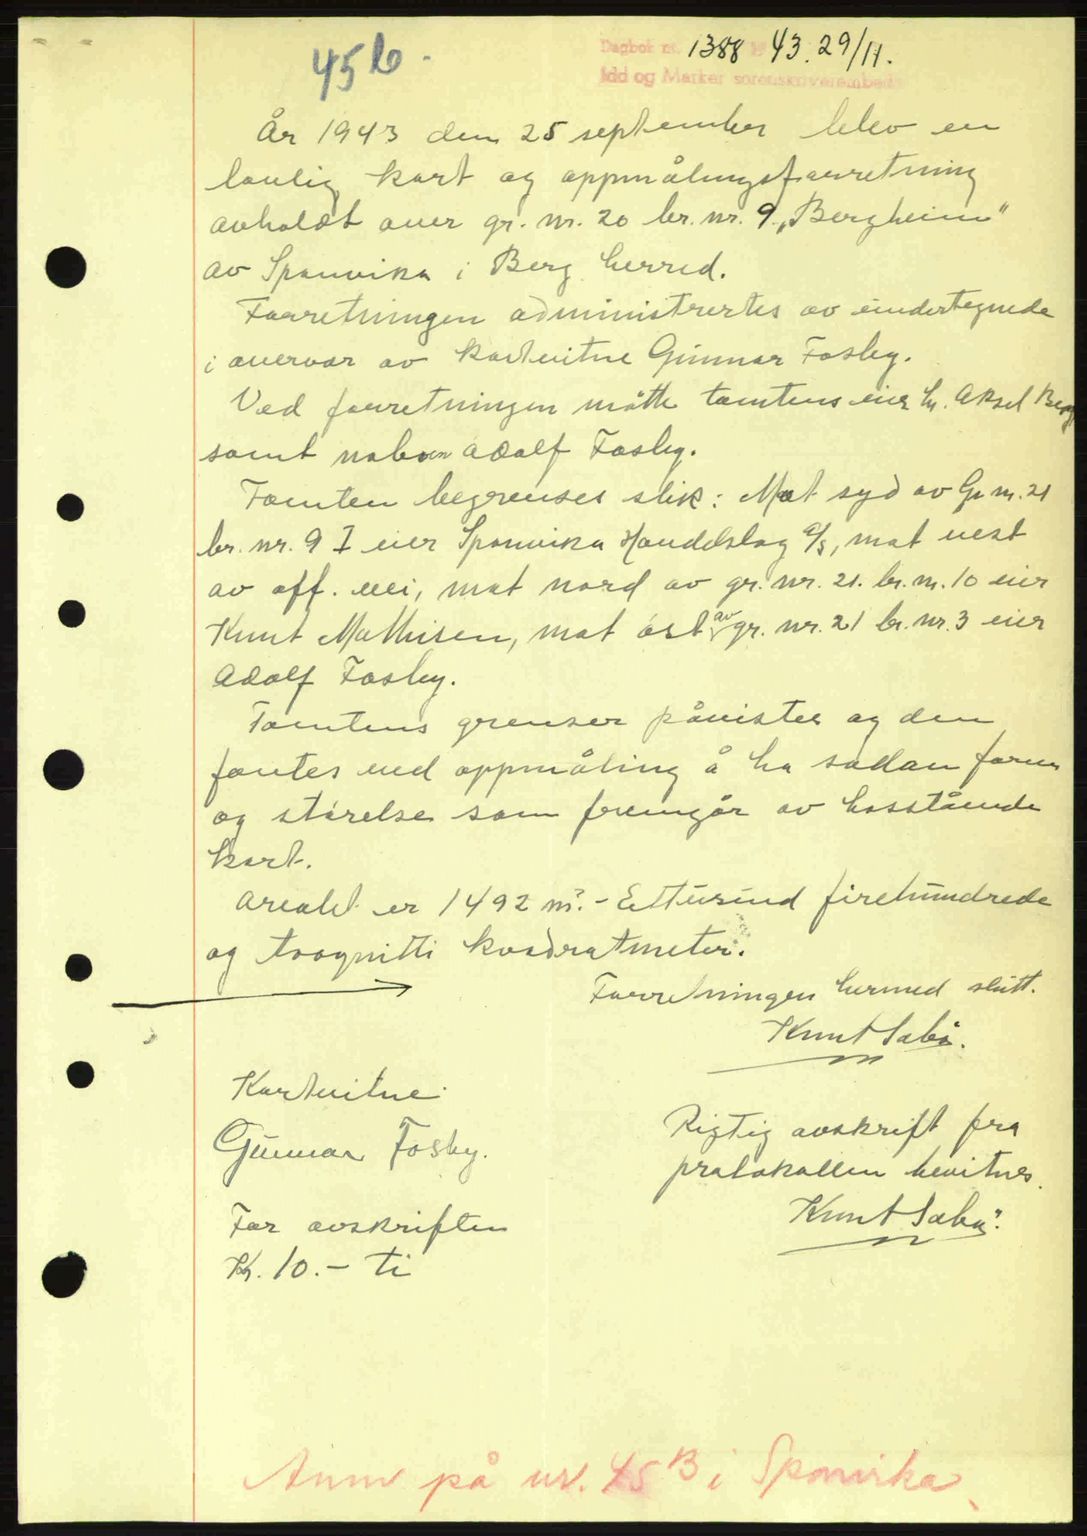 45 b.
Dagbok nr. 1388 19 43. 29/11.
Idd og Marker sorenskriverembede
År 1943 den 25 september blev en
lovlig kart og oppmålingsforretning
avholdt over gr. nr. 20 br. nr. 9 „Bergheim"
av Sponvika i Berg herred.
Forretningen administrertes av undertegnede
i overvær av kartvitne Gunnar Fosby.
Ved forretningen møtte tomtens eier hr. Aksel Berg
samt naboen Adolf Fosby.
Tomten begrenses slik: Mot syd av Gr. nr. 21
br. nr. 9 I eier Sponvika Handelslag a/s, mot vest
av off. vei, mot nord av gr. nr. 21. br. nr. 10 eier
Knut Mathisen, mot øst av gr. nr. 21 br. nr. 3 eier
Adolf Fosby.
Tomtens grenser påvistes og den
fantes ved oppmåling å ha sådan form
og størelse som fremgår av hosstående
kart.
Arealet er 1492 m². - Ettusind firehundrede
og tvognitti kvadratmeter.
Forretningen hermed slutt.
Knut Sabø.
Kartvitne:
Gunnar Fosby.
Rigtig avskrift fra
protokollen bevitnes.
Knut Sabø.
For avskriften
Kr. 10.- ti
Anm på nr. 45 B i Sponvika